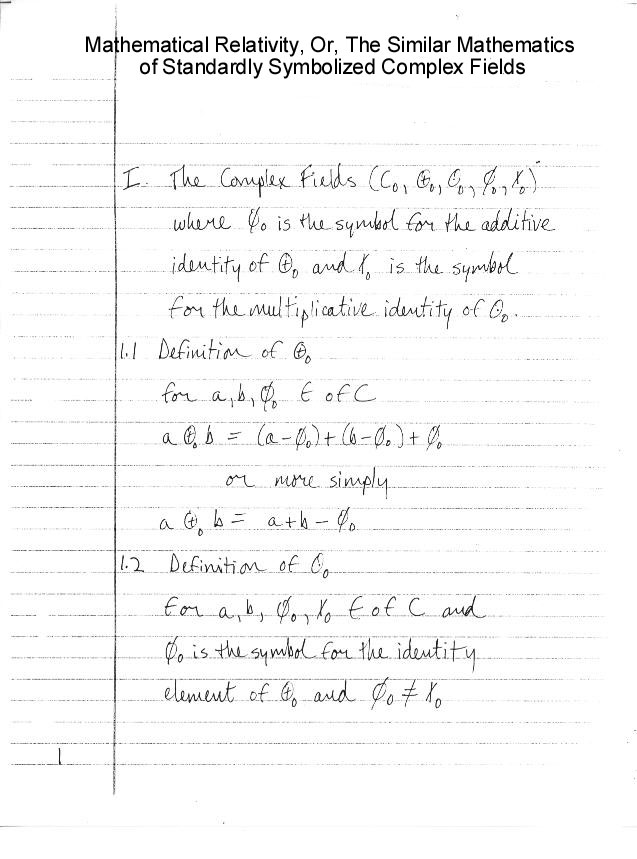 Mathematical Relativity, Or, The Similar Mathematics
of Standardly Symbolized Complex Fields
I. The Complex Fields (C₀, ⊕₀, ⊙₀, ∅₀, X₀)
where ∅₀ is the symbol for the additive
identity of ⊕₀ and X₀ is the symbol
for the multiplicative identity of ⊙₀.
1.1 Definition of ⊕₀
for a, b, ∅₀ ∈ of C
a ⊕₀ b = (a-∅₀)+(b-∅₀)+∅₀
or more simply
a ⊕₀ b = a+b-∅₀
1.2 Definition of ⊙₀
for a, b, ∅₀, X₀ ∈ of C and
∅₀ is the symbol for the identity
element of ⊕₀ and ∅₀ ≠ X₀
1